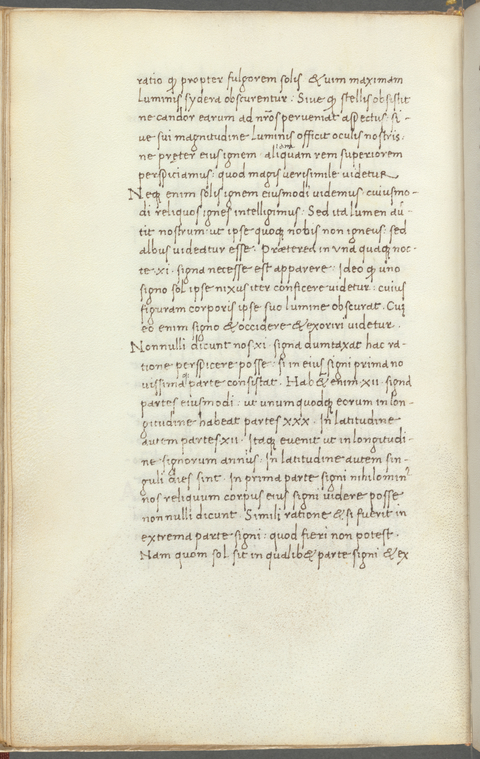 ratio q̃ propter fulgorem solis · & uim maximam
luminis sydera obscurentur · Siue q̃ stellis obsistit
ne candor earum ad nr̃os perueniat aspectus · si-
ue sui magnitudine luminis officit oculis nostris ·
ne preter eius ignem aliquam rem superiorem
perspiciamus · quod magis uerisimile uidetur
Neq; enim solis ignem eiusmodi uidemus cuiusmo-
di reliquos ignes intelligimus · Sed ita lumen
tit nostrum · ut ipse quoq; nobis non igneus · sed
albus uideatur esse · Præterea in una quaq; noc-
te · xi · signa necesse est apparere · Ideo q̃ uno
signo sol ipse nixus iter conficere uidetur · cuius
figuram corporis ipse suo lumine obscurat · Cui
eo enim signo & occidere & exoriri uidetur ·
Nonnulli dicunt nos xi · signa dumtaxat hac ra-
tione perspicere posse · si in eius signi prima no
uissima parte consistat · Hab& enim · xii · signa
partes eiusmodi · ut unum quodq; eorum in lon-
gitudine habeat partes xxx · In latitudine
autem partes xii · Itaq; euenit ut in longitudi-
ne signorum annus · In latitudine autem sin-
guli dies sint · In prima parte signi nihilomin⁹
nos reliquum corpus eius signi uidere posse
nonnulli dicunt · Simili ratione & si fuerit in
extrema parte signi · quod fieri non potest ·
Nam quom sol sit in qualib& parte signi & ex